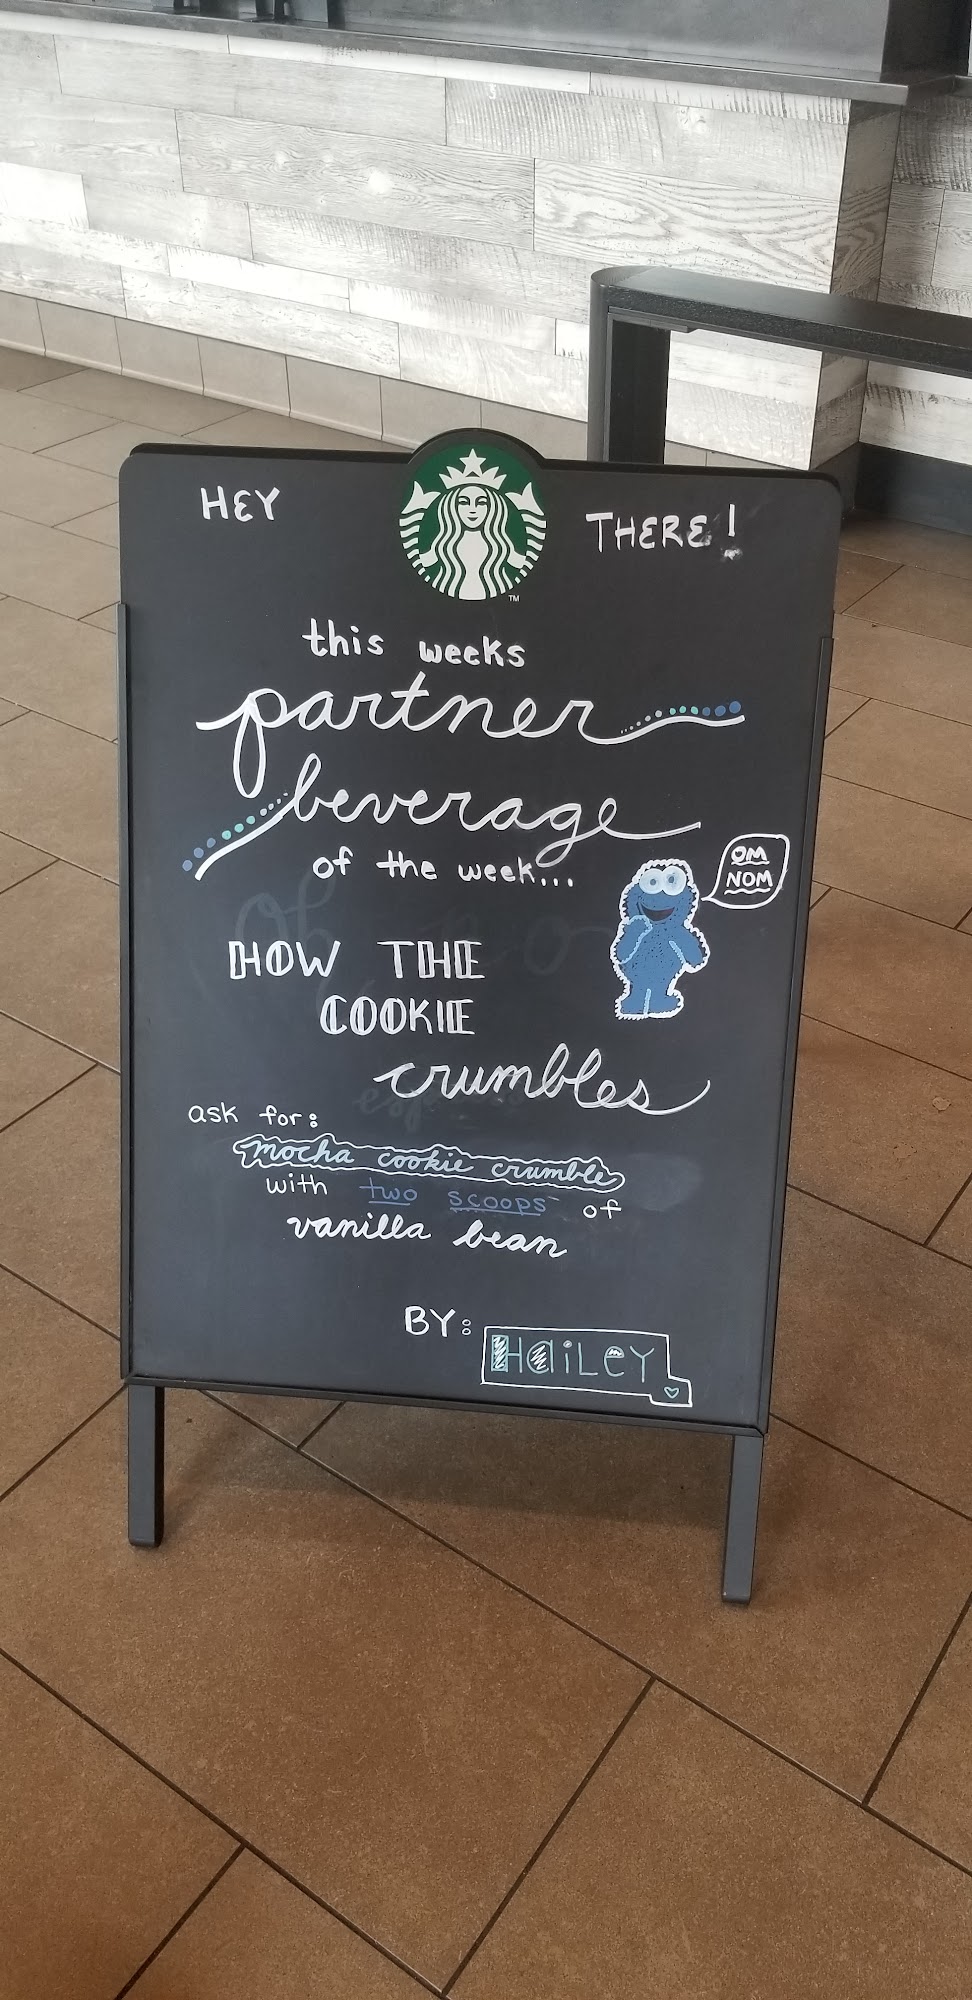 HEY THERE!
TM
this weeks
partner
beverage
of the week...
OM
NOM
HOW THE
COOKIE
crumbles
ask for:
mocha cookie crumble
with two scoops of
vanilla bean
BY: HaiLeY